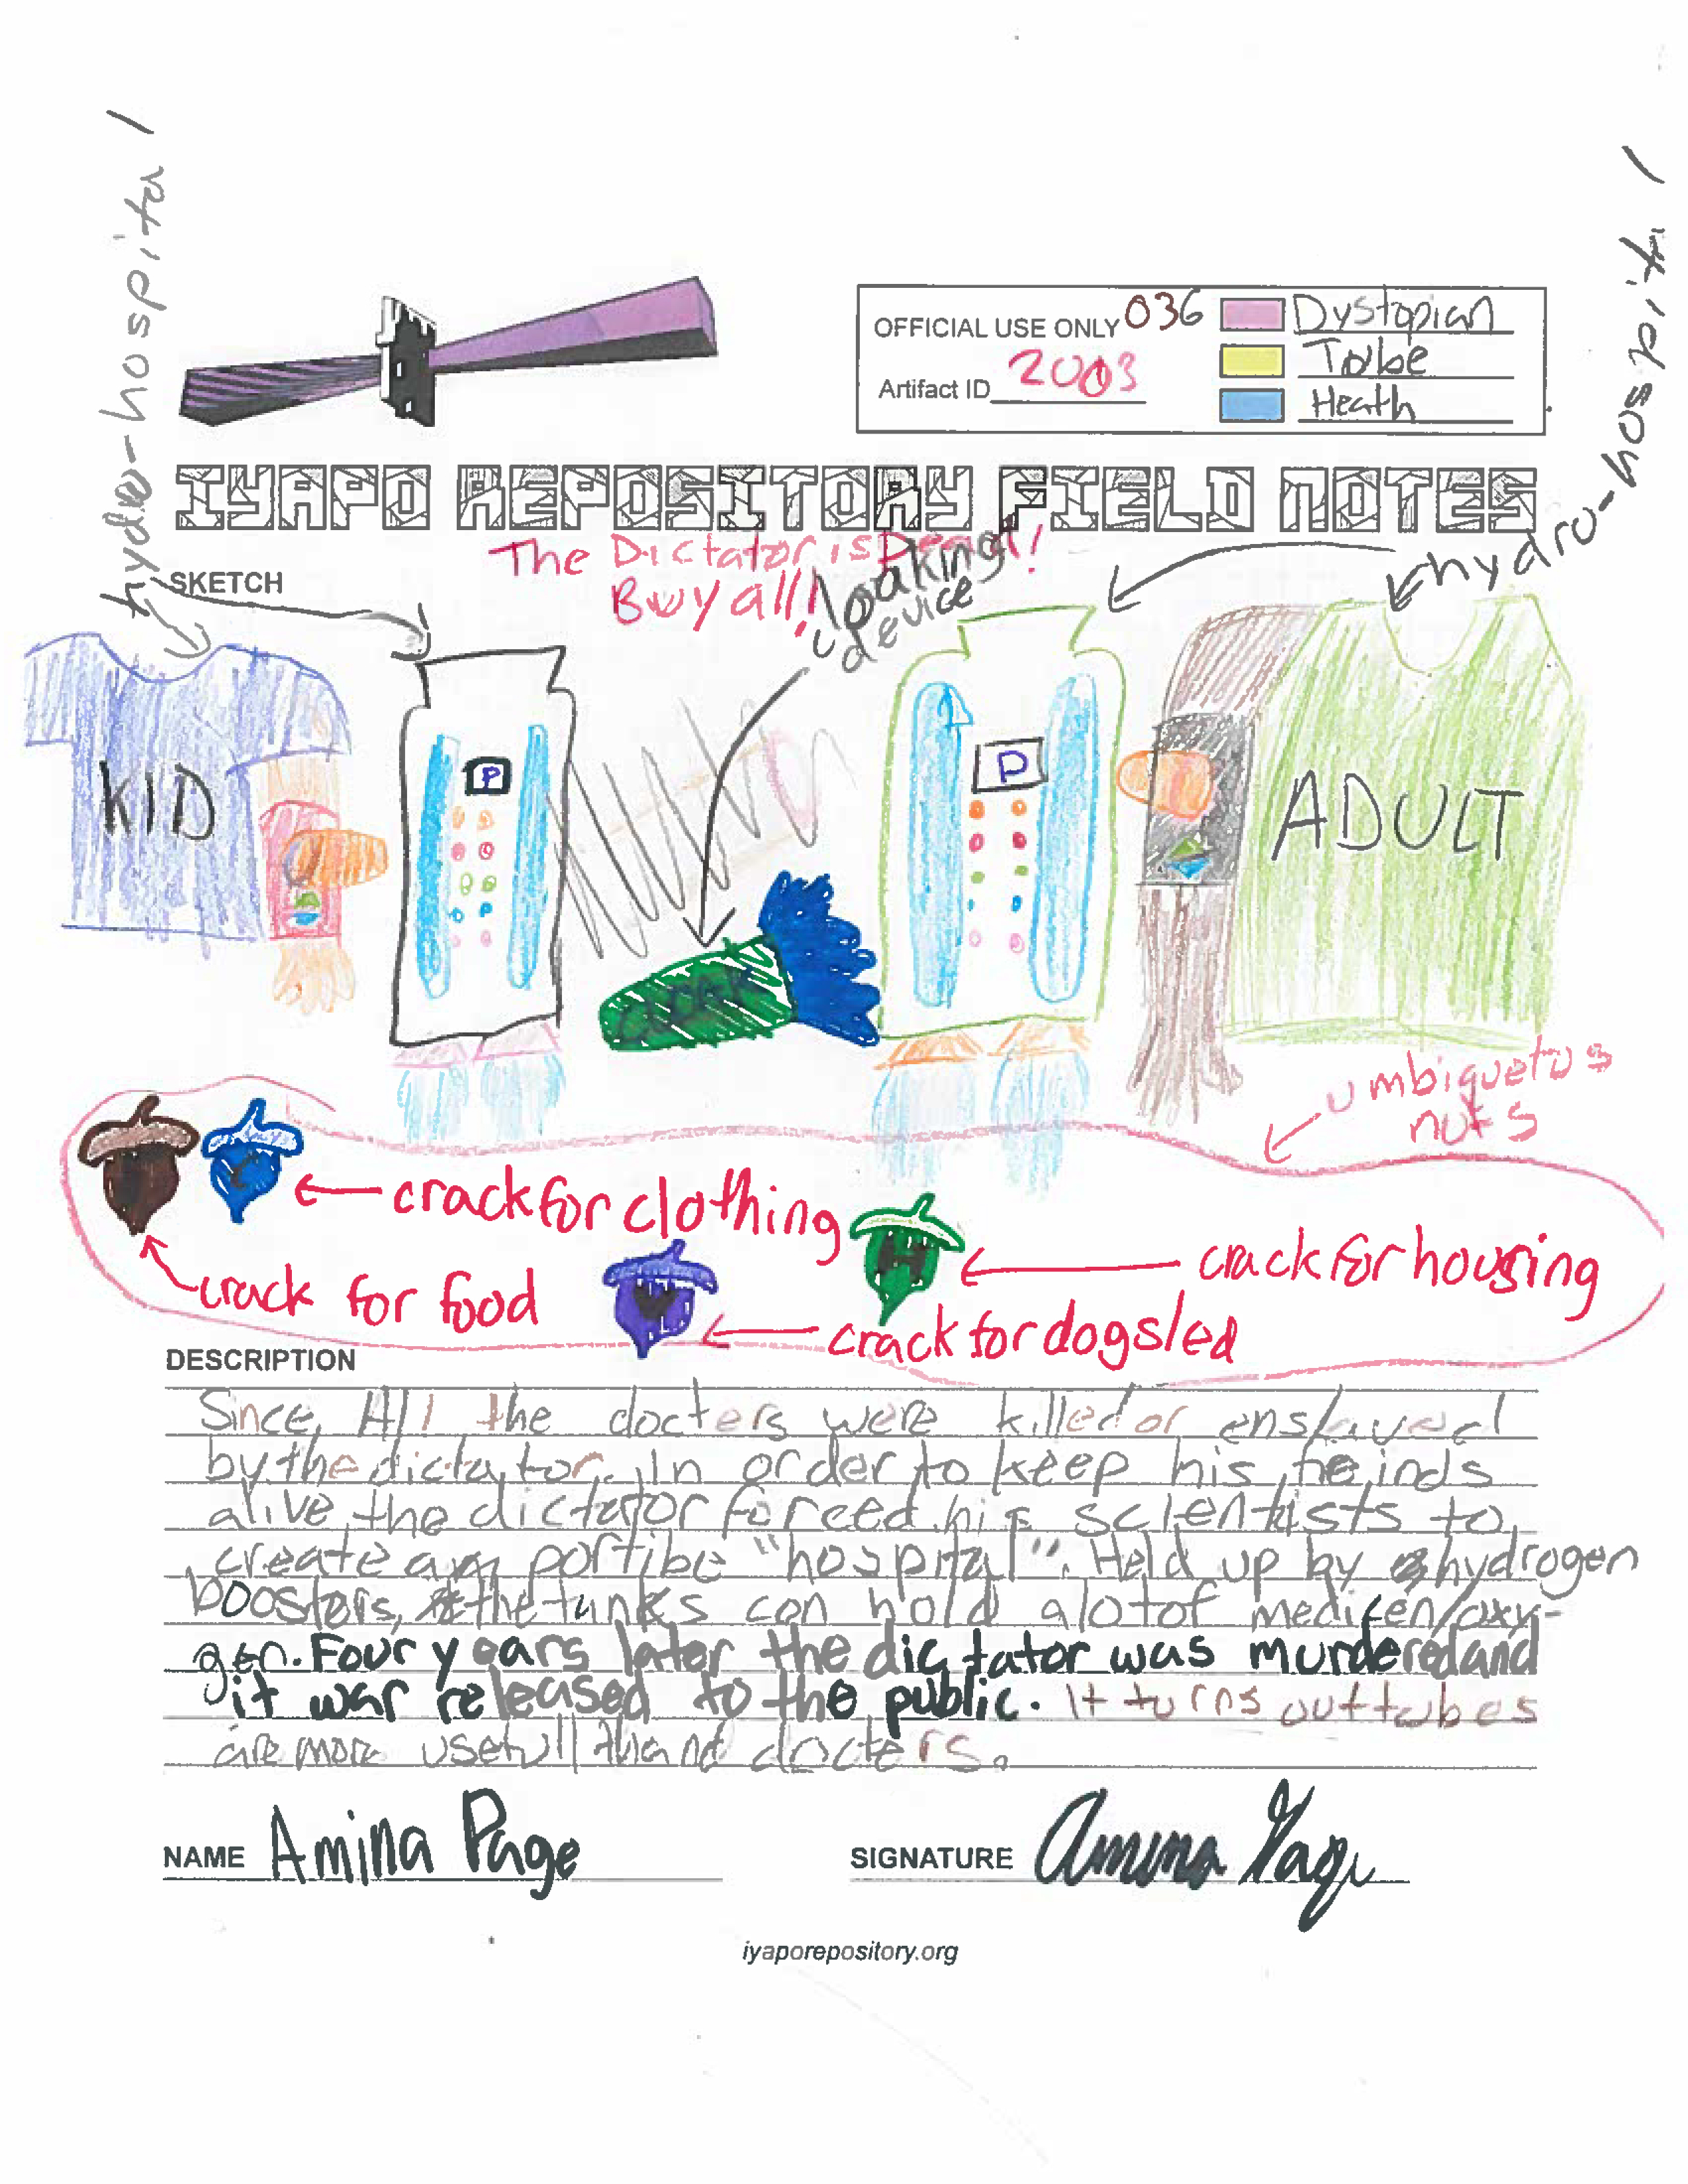 hydro-hospital
hydro-hospital
OFFICIAL USE ONLY 036
Artifact ID 2003
Dystopian
Tribe
Heath
IYAPO REPOSITORY FIELD NOTES
The Dictator is Dead!
Buy all!
device
SKETCH
KID
P
P
ADULT
umbiquetus
nuts
crack for clothing
crack for food
crack for housing
crack for dogsled
DESCRIPTION
Since, All the docters were killed or enslaved
by the dictator. In order to keep his
alive, the dictator forced his scientists to
create portibe "hospital". Held up by hydrogen
boosters, the tanks can hold alot of medicen/oxy-
gen. Four years later the dictator was murdered and
it war released to the public. It turns out tubes
are more usefull docters.
NAME Amina Page
SIGNATURE Amina Page
iyaporepository.org